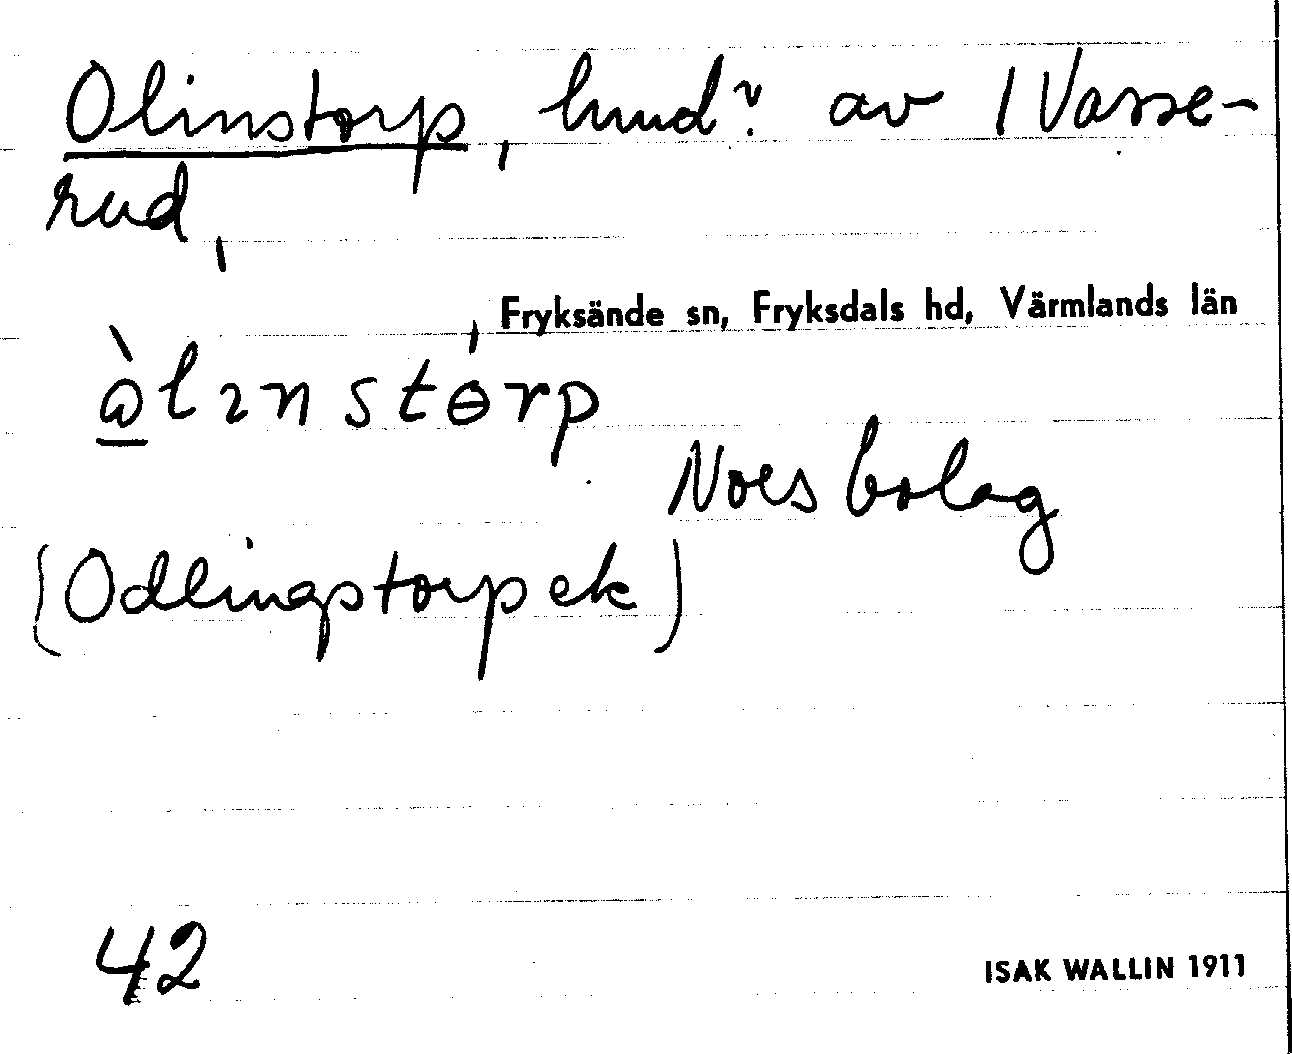 Olinstorp, lund? av 1 Vasse-
rud,
Fryksände sn, Fryksdals hd, Värmlands län
òlınstorp
Noesbolag
(Odlingstorp ek)
42
ISAK WALLIN 1911